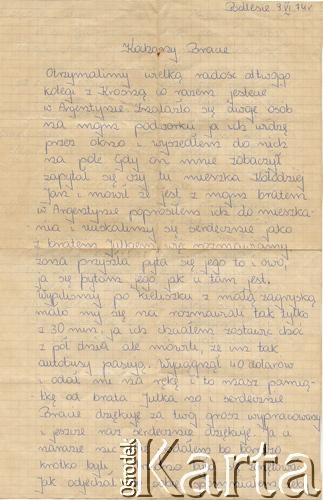 Podlesie 9 VI 74r
Kochany Bracie
Otrzymaliśmy wielką radość od twojego
kolegi z Krosna co razem jesteście
w Argentynie Znalazło się dwoje osób
na mojm podwórku ja ich widzę
przez okno i wyszedłem do nich
na pole Gdy on mnie zobaczył
zapytał się czy tu mieszka Kołodziej
Jan i mówił że jest z mojm bratem
w Argentynie poprosiłem ich do mieszka-
nia i uściskalimy się serdecznie jako
z bratem Julkiem się rozmawiamy
żona przyszła pyta się jego to i owo,
ja się pytam jego jak u tam jest.
Wypilimy po kieliszku z małą zagryską
mało my się na rozmawiali tak tylko
z 30 min. ja ich chciałem zostawić choć
z pół dnia ale mówili, że im tak
autobusy pasują. Wyciągnął 40 dolarów
i odał mi na rękę i to masz pamią-
tkę od brata Julka no i serdecznie
Bracie dziękuję za twój grosz wypracowany
i jeszcze raz serdecznie dziękuję. Ja u
narazie nic nie dałem bo bardzo
krótko byli
jak odjechał
Ośrodek
Karta